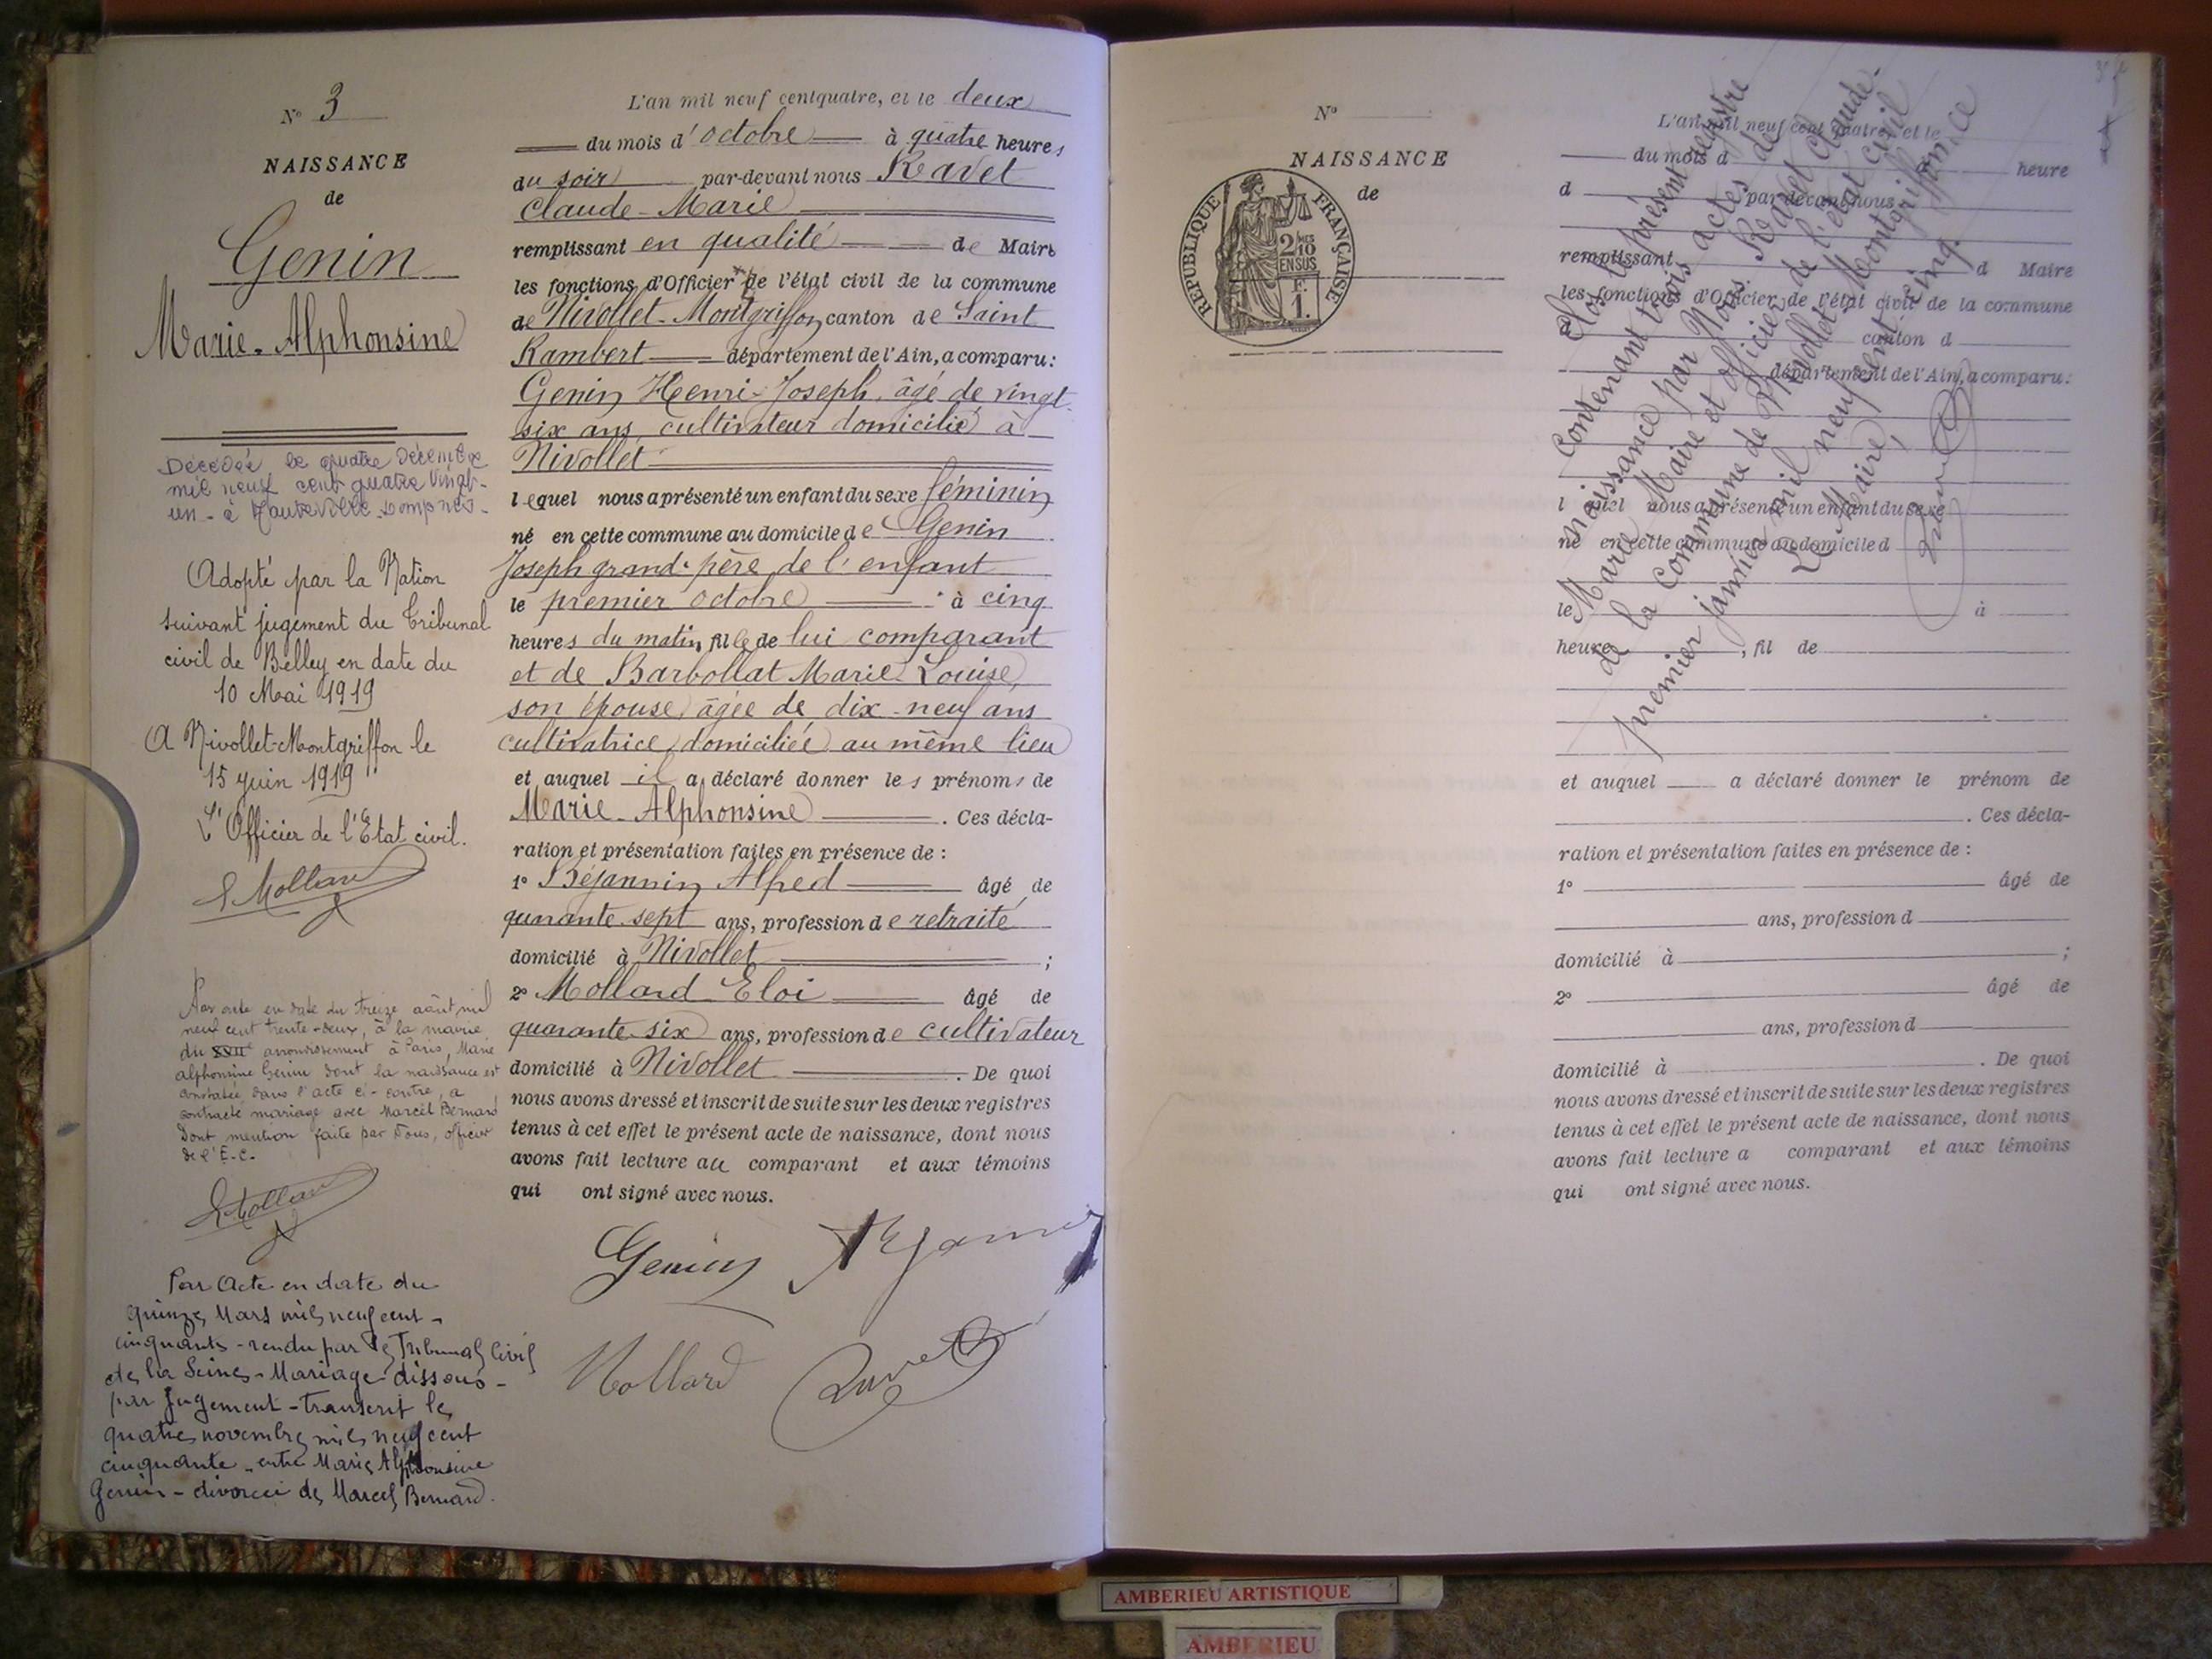 N° 3
NAISSANCE
de
Genin
Marie-Alphonsine
Décédée le quatre Décembre
mil neuf cent quatre vingt-
un - à Hauteville Lompnes.
Adopté par la Nation
suivant jugement du Tribunal
civil de Belley en date du
10 Mai 1919
A Nivollet-Montgriffon le
15 juin 1919
L'Officier de l'Etat civil.
E Mollard
Par acte en date du treize août mil
neuf cent trente-deux, à la mairie
du XVIIe arrondissement à Paris, Marie
alphonsine Genin dont la naissance est
constatée dans l'acte ci-contre, a
contracté mariage avec Marcel Bernard
Dont mention faite par Nous, officier
de l'E-C-
E Mollard
Par Acte en date du
quinze Mars mil neuf cent -
cinquante - rendu par le Tribunal Civil
de la Seine - Mariage dissous -
par Jugement - transcrit le
quatre novembre mil neuf cent
cinquante - entre Marie Alphonsine
Genin - divorcée de Marcel Bernard.
L'an mil neuf cent quatre, et le deux
du mois d'octobre à quatre heures
du soir par-devant nous Ravet
Claude-Marie
remplissant en qualité de Maire
les fonctions d'Officier de l'état civil de la commune
de Nivollet-Montgriffon canton de Saint
Rambert département de l'Ain, a comparu :
Genin Henri-Joseph, âgé de vingt-
six ans, cultivateur domicilié à
Nivollet
lequel nous a présenté un enfant du sexe féminin
né en cette commune au domicile de Genin
Joseph grand-père de l'enfant
le premier octobre à cinq
heures du matin, fille de lui comparant
et de Barbollat Marie Louise,
son épouse, âgée de dix-neuf ans
cultivatrice, domiciliée au même lieu
et auquel il a déclaré donner les prénoms de
Marie-Alphonsine . Ces décla-
ration et présentation faites en présence de :
1° Béjannin Alfred âgé de
quarante-sept ans, profession de retraité
domicilié à Nivollet ;
2° Mollard Eloi âgé de
quarante-six ans, profession de cultivateur
domicilié à Nivollet . De quoi
nous avons dressé et inscrit de suite sur les deux registres
tenus à cet effet le présent acte de naissance, dont nous
avons fait lecture au comparant et aux témoins
qui ont signé avec nous.
Genin
Mollard Ravet
N°
NAISSANCE
de
REPUBLIQUE FRANÇAISE
2 MES
10
EN SUS
F.
1.
L'an mil neuf cent quatre, et le
du mois d heure
d par-devant nous
remplissant d Maire
les fonctions d'Officier de l'état civil de la commune
canton d
département de l'Ain, a comparu :
l quel nous a présenté un enfant du sexe
né en cette commune au domicile d
le à
heure , fil de
et auquel a déclaré donner le prénom de
. Ces décla-
ration et présentation faites en présence de :
1° âgé de
ans, profession d
domicilié à ;
2° âgé de
ans, profession d
domicilié à . De quoi
nous avons dressé et inscrit de suite sur les deux registres
tenus à cet effet le présent acte de naissance, dont nous
avons fait lecture a comparant et aux témoins
qui ont signé avec nous.
Clos le présent registre
Contenant trois actes de
Naissance par Nous Ravet Claude-
Marie Maire et officier de l'état civil
de la Commune de Nivollet Montgriffon,
premier janvier mil neuf cent cinq.
Le Maire,
Ravet
AMBERIEU ARTISTIQUE
AMBERIEU